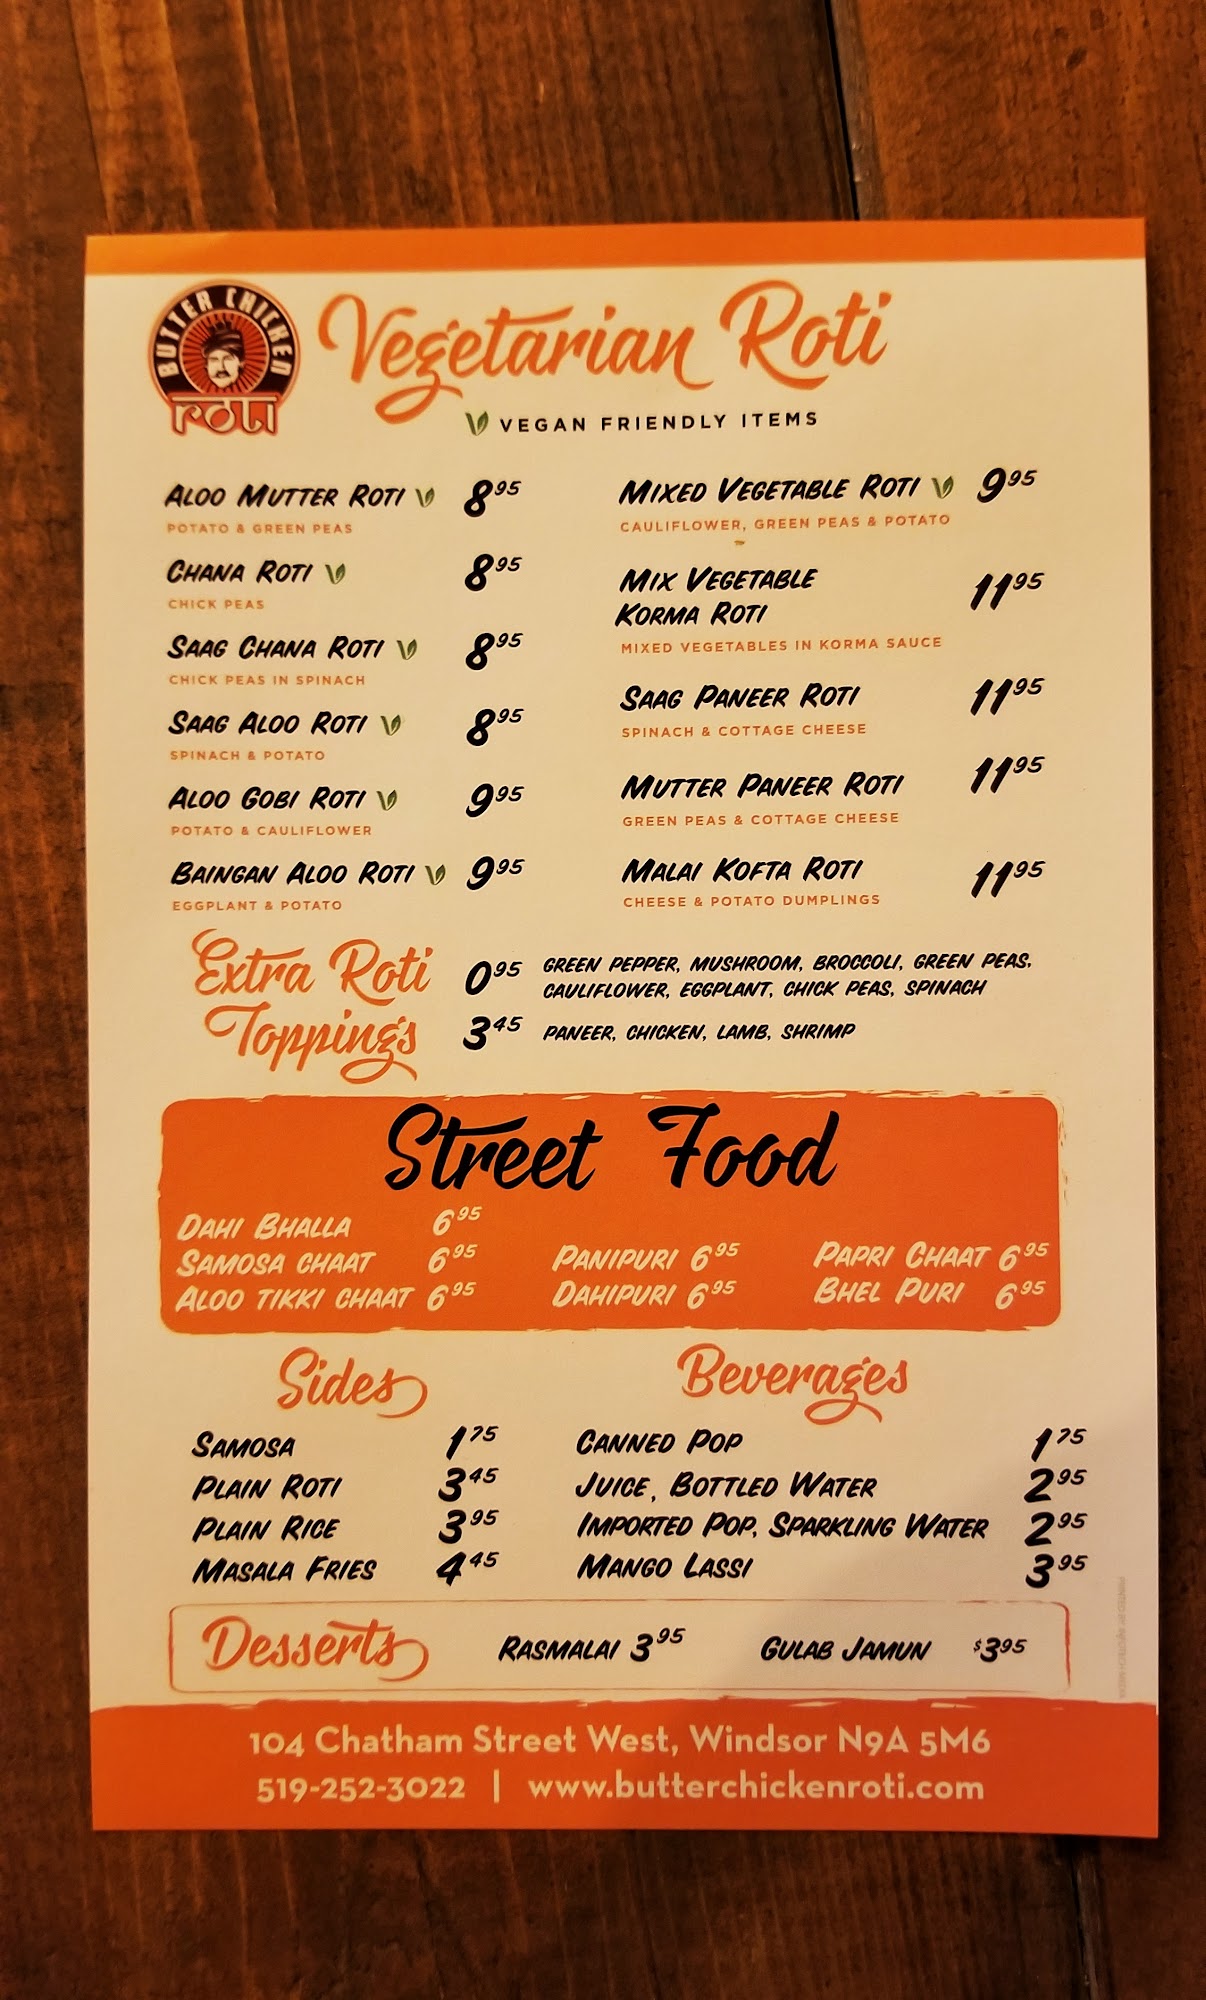 BUTTER CHICKEN
roti
Vegetarian Roti
VEGAN FRIENDLY ITEMS
ALOO MUTTER ROTI 8.95
POTATO & GREEN PEAS
CHANA ROTI 8.95
CHICK PEAS
SAAG CHANA ROTI 8.95
CHICK PEAS IN SPINACH
SAAG ALOO ROTI 8.95
SPINACH & POTATO
ALOO GOBI ROTI 9.95
POTATO & CAULIFLOWER
BAINGAN ALOO ROTI 9.95
EGGPLANT & POTATO
MIXED VEGETABLE ROTI 9.95
CAULIFLOWER, GREEN PEAS & POTATO
MIX VEGETABLE
KORMA ROTI 11.95
MIXED VEGETABLES IN KORMA SAUCE
SAAG PANEER ROTI 11.95
SPINACH & COTTAGE CHEESE
MUTTER PANEER ROTI 11.95
GREEN PEAS & COTTAGE CHEESE
MALAI KOFTA ROTI 11.95
CHEESE & POTATO DUMPLINGS
Extra Roti
Toppings
0.95 GREEN PEPPER, MUSHROOM, BROCCOLI, GREEN PEAS,
CAULIFLOWER, EGGPLANT, CHICK PEAS, SPINACH
3.45 PANEER, CHICKEN, LAMB, SHRIMP
Street Food
DAHI BHALLA 6.95
SAMOSA CHAAT 6.95
ALOO TIKKI CHAAT 6.95
PANIPURI 6.95
DAHIPURI 6.95
PAPRI CHAAT 6.95
BHEL PURI 6.95
Sides
SAMOSA 1.75
PLAIN ROTI 3.45
PLAIN RICE 3.95
MASALA FRIES 4.45
Beverages
CANNED POP 1.75
JUICE, BOTTLED WATER 2.95
IMPORTED POP, SPARKLING WATER 2.95
MANGO LASSI 3.95
Desserts
RASMALAI 3.95
GULAB JAMUN $3.95
104 Chatham Street West, Windsor N9A 5M6
519-252-3022 | www.butterchickenroti.com